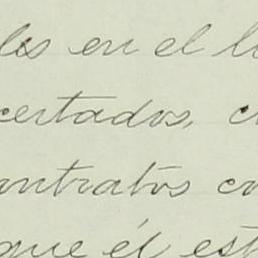 les en el l
certados, c
ontratos co
que él est